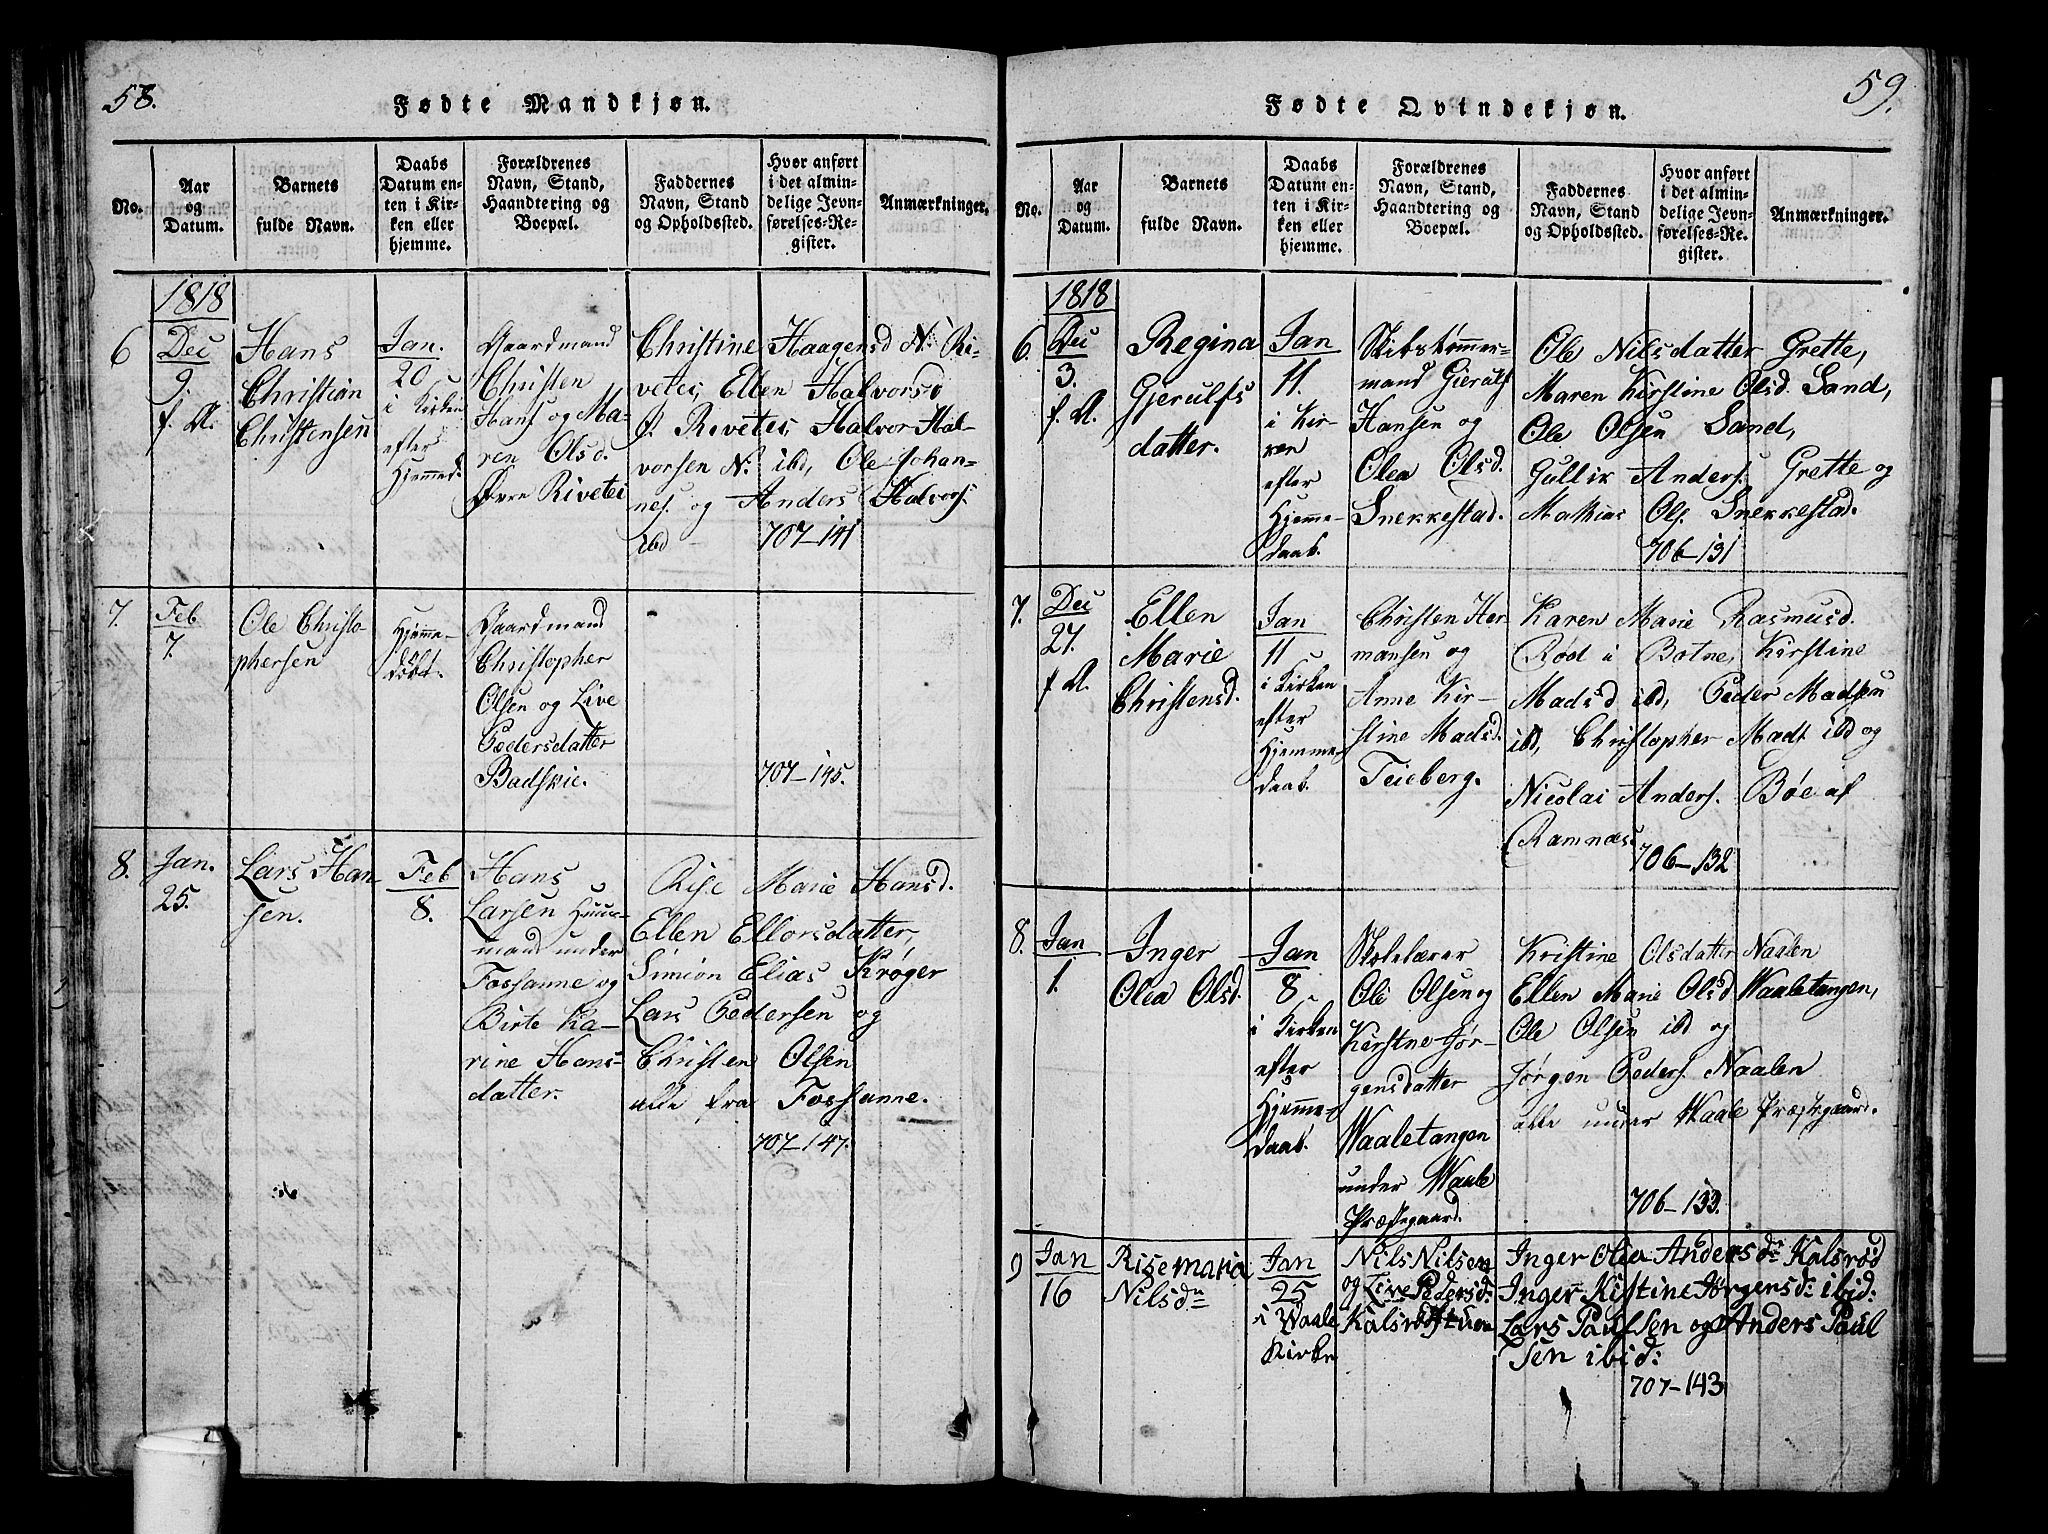 58.
Fødte Mandkjøn.
No.
Aar
og
Datum.
Barnets
fulde Navn.
Daabs
Datum en-
ten i Kir-
ken eller
hjemme.
Forældrenes
Navn, Stand,
Haandtering og
Boepæl.
Faddernes
Navn, Stand
og Opholdssted.
Hvor anført
i det almin-
delige Jevn-
førelses-Re-
gister.
Anmærkninger.
1818
6
Dec
9.
f. A.
Hans
Christian
Christensen
Jan.
20
i Kirken
efter
Hjemmed.
Gaardmand
Christen
Hans og Ma-
ren Olsd.
Øvre Rivetei
Christine Haagensd N. Ri-
vetei, Ellen Halvorsd
Ø. Rivetei, Halvor Hal-
vorsen N. ibd, Ole Johan-
nes. og Anders Halvors.
ibd
707-141
7.
Feb
7.
Ole Christo-
phersen
Hjemme-
døbt.
Gaardmand
Christopher
Olsen og Live
Pedersdatter
Badskie.
707-145.
8.
Jan.
25.
Lars Han
sen.
Feb
8.
Hans
Larsen Huus-
mand under
Fossanne og
Birte Ka-
rine Hans-
datter.
Rise Marie Hansd.
Ellen Ellorsdatter,
Simion Elias Krøger
Lars Pedersen og
Christen Olsen
alle fra Fossanne.
707-147.
59.
Fødte Qvindekjøn.
No.
Aar
og
Datum.
Barnets
fulde Navn.
Daabs
Datum en-
ten i Kir-
ken eller
hjemme.
Forældrenes
Navn, Stand,
Haandtering og
Boepæl.
Faddernes
Navn, Stand
og Opholdssted.
Hvor anført
i det almin-
delige Jevn-
førelses-Re-
gister.
Anmærkninger.
1818
6.
Dec
3.
f. A.
Regina
Gjerulfs
datter.
Jan
11.
i Kir-
ken
efter
Hjemme-
daab.
Skibstømmer-
mand Gierulf
Hansen og
Olea Olsd.
Snekkestad.
Ole Nilsdatter Grette,
Maren Kirstine Olsd. Sand,
Ole Olsen Sand,
Gullik Anders. Grette og
Mathias Ols. Snekkestad.
706-131
7.
Dec
27.
f A.
Ellen
Marie
Christensd.
Jan
11
i Kirken
efter
Hjemme-
daab.
Christen Her
mansen og
Anne Kir-
stine Madsd.
Teieberg.
Karen Marie Rasmusd.
Rød i Botne, Kirstine
Madsd ibd, Peder Madsen
ibd, Christopher Mads ibd og
Nicolai Anders. Bøe af
Ramnæs.
706-132
8.
Jan
1.
Inger
Olea Olsd.
Jan
8
i Kirken
efter
Hjemme-
daab.
Skolelærer
Ole Olsen og
Kirstne Jør-
gensdatter
Waaletangen
under Waale
Præstegaard.
Kristine Olsdatter Naalen
Ellen Marie Olsd Waaletangen,
Ole Olsen ibd og
Jørgen Peders. Naalen
alle under Waale Præstgaard.
706-133.
9
Jan
16
Risemaria
Nilsdn
Jan
25
i Waale
Kirke
Nils Nilsen
og Live Pedersd:
Kalsrødstuen
Inger Olea Andersdn Kalsrød
Inger Kistine Jørgensd: ibid:
Lars Paulsen og Anders Paul
sen ibid:
707-143